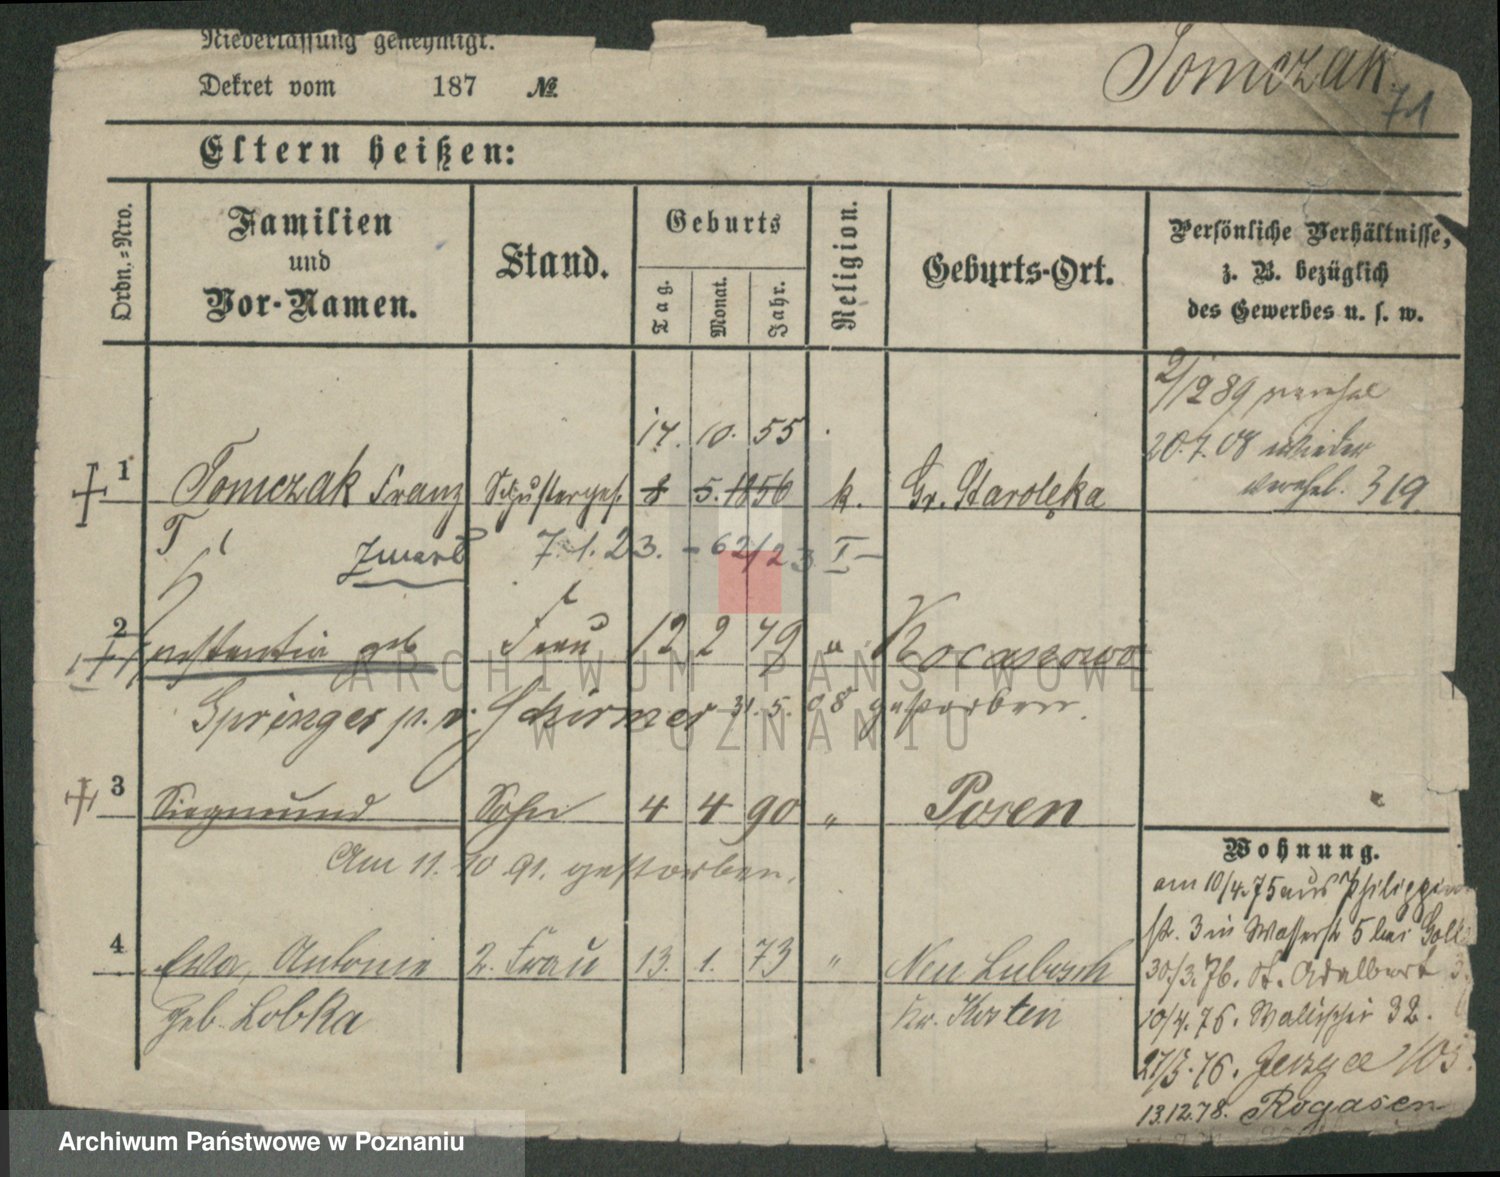 Niederlassung genehmigt.
Dekret vom 187 №
Tomczak
71
Eltern heißen:
Ordn.-Nro.
Familien
und
Vor-Namen.
Stand.
Geburts
Tag.
Monat.
Jahr.
Religion.
Geburts-Ort.
Persönliche Verhältnisse,
z. B. bezüglich
des Gewerbes u. s. w.
2/12 89 verehel
20.7.08 wieder
verehel. 319.
17. 10. 55
1 Tomczak Franz Schusterges. 8 5. 1856 k. Gr. Starolęka
T
Zmarł 7.1.23. - 62/23 I -
2 Constantia geb Frau 12 2 49 " Kocanowo
Springer p. v. Schirmer 31.5.08 gestorben.
3 Siegmund Sohn 4 4 90 " Posen
Am 11.10 91. gestorben.
4 Ewa, Antonie 2. Frau 13. 1. 73 " Neu Lubosch
geb. Lobka Kr. Kosten
Wohnung.
am 10/4.75 aus Philippin
str. 3 in Wasserstr 5 bei
30/3.76. St. Adalbert 3.
10/4.76. Wallischei 32.
27/5.76. 103.
13.12.78. Rogasen
ARCHIWUM PAŃSTWOWE
W POZNANIU
Archiwum Państwowe w Poznaniu